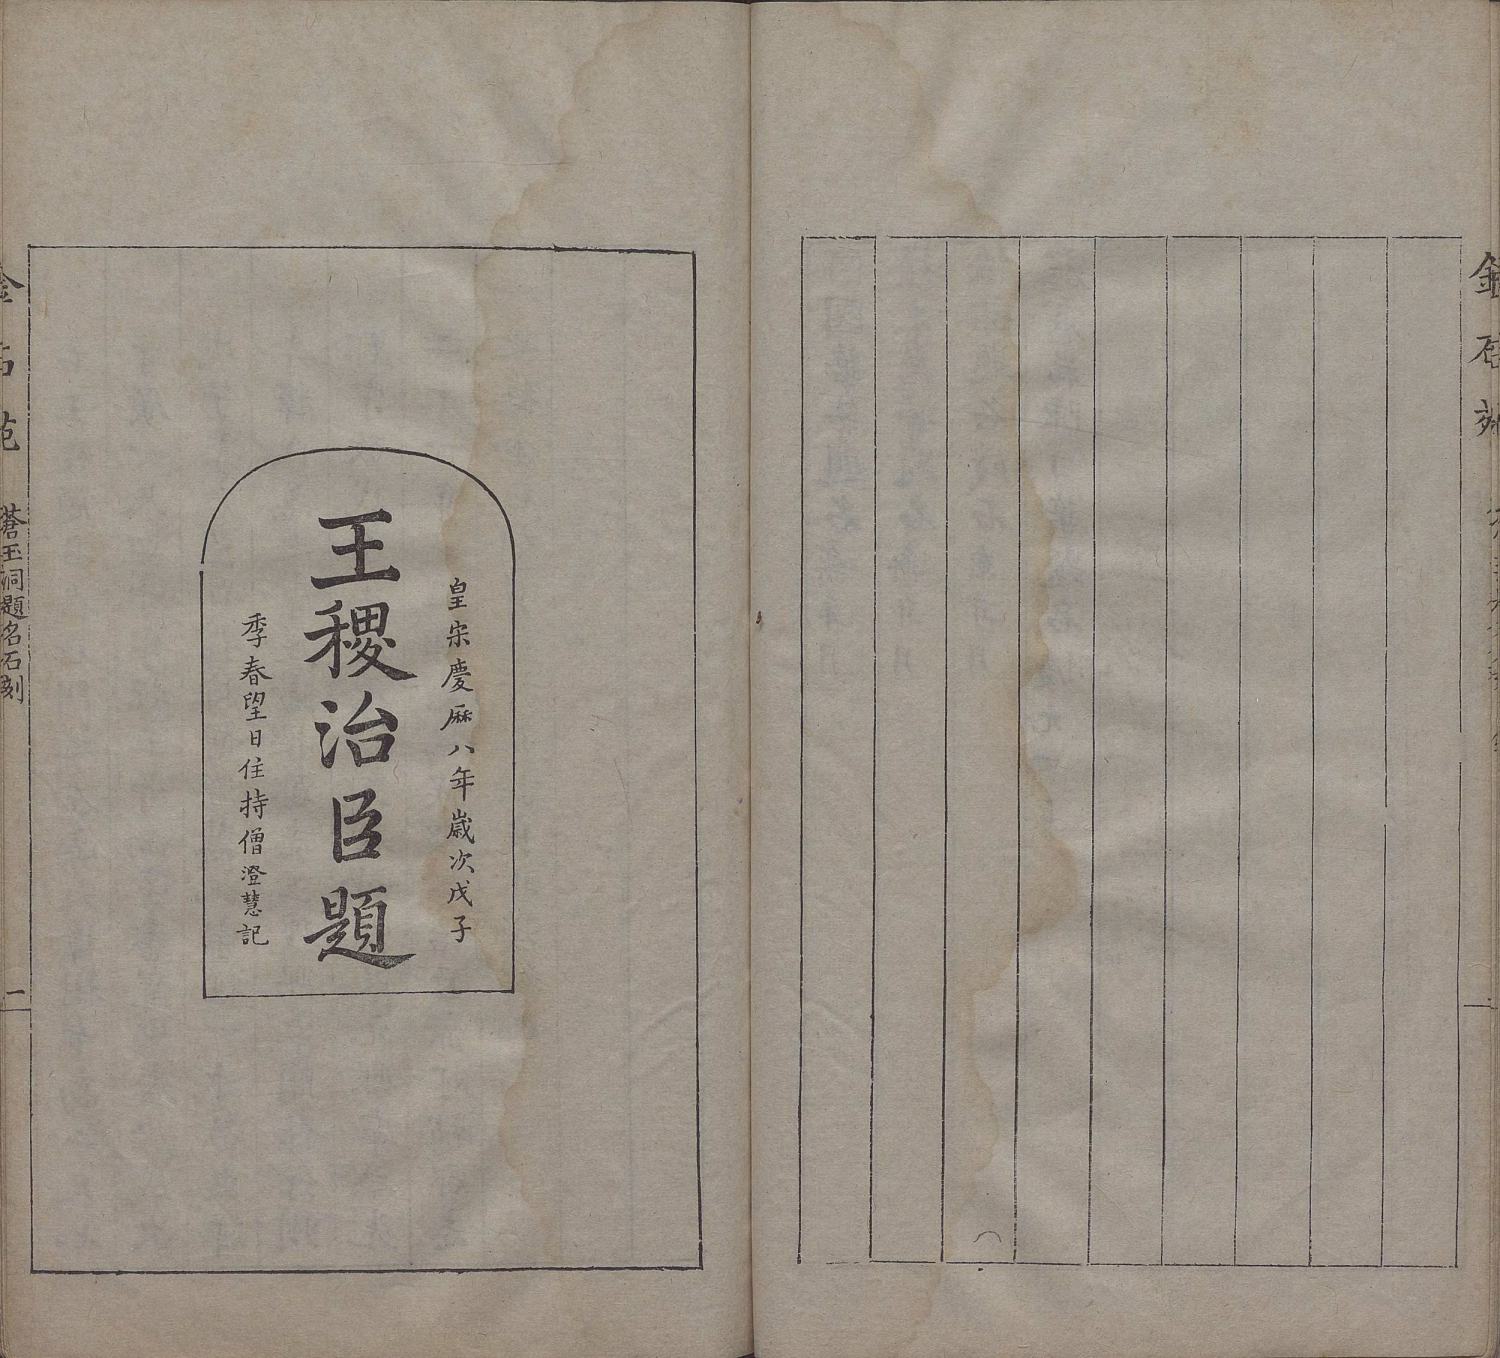 金石苑
皇宋慶厯八年歲次戊子
王稷治臣題
季春望日住持僧澄慧記
金石苑
蒼玉洞題名石刻
一